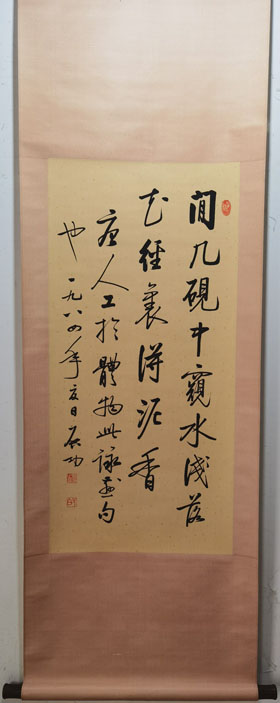 閒几硯中窺水淺落
花徑裏得泥香
唐人工於體物此詠燕句
也 一九八四年夏日 启功